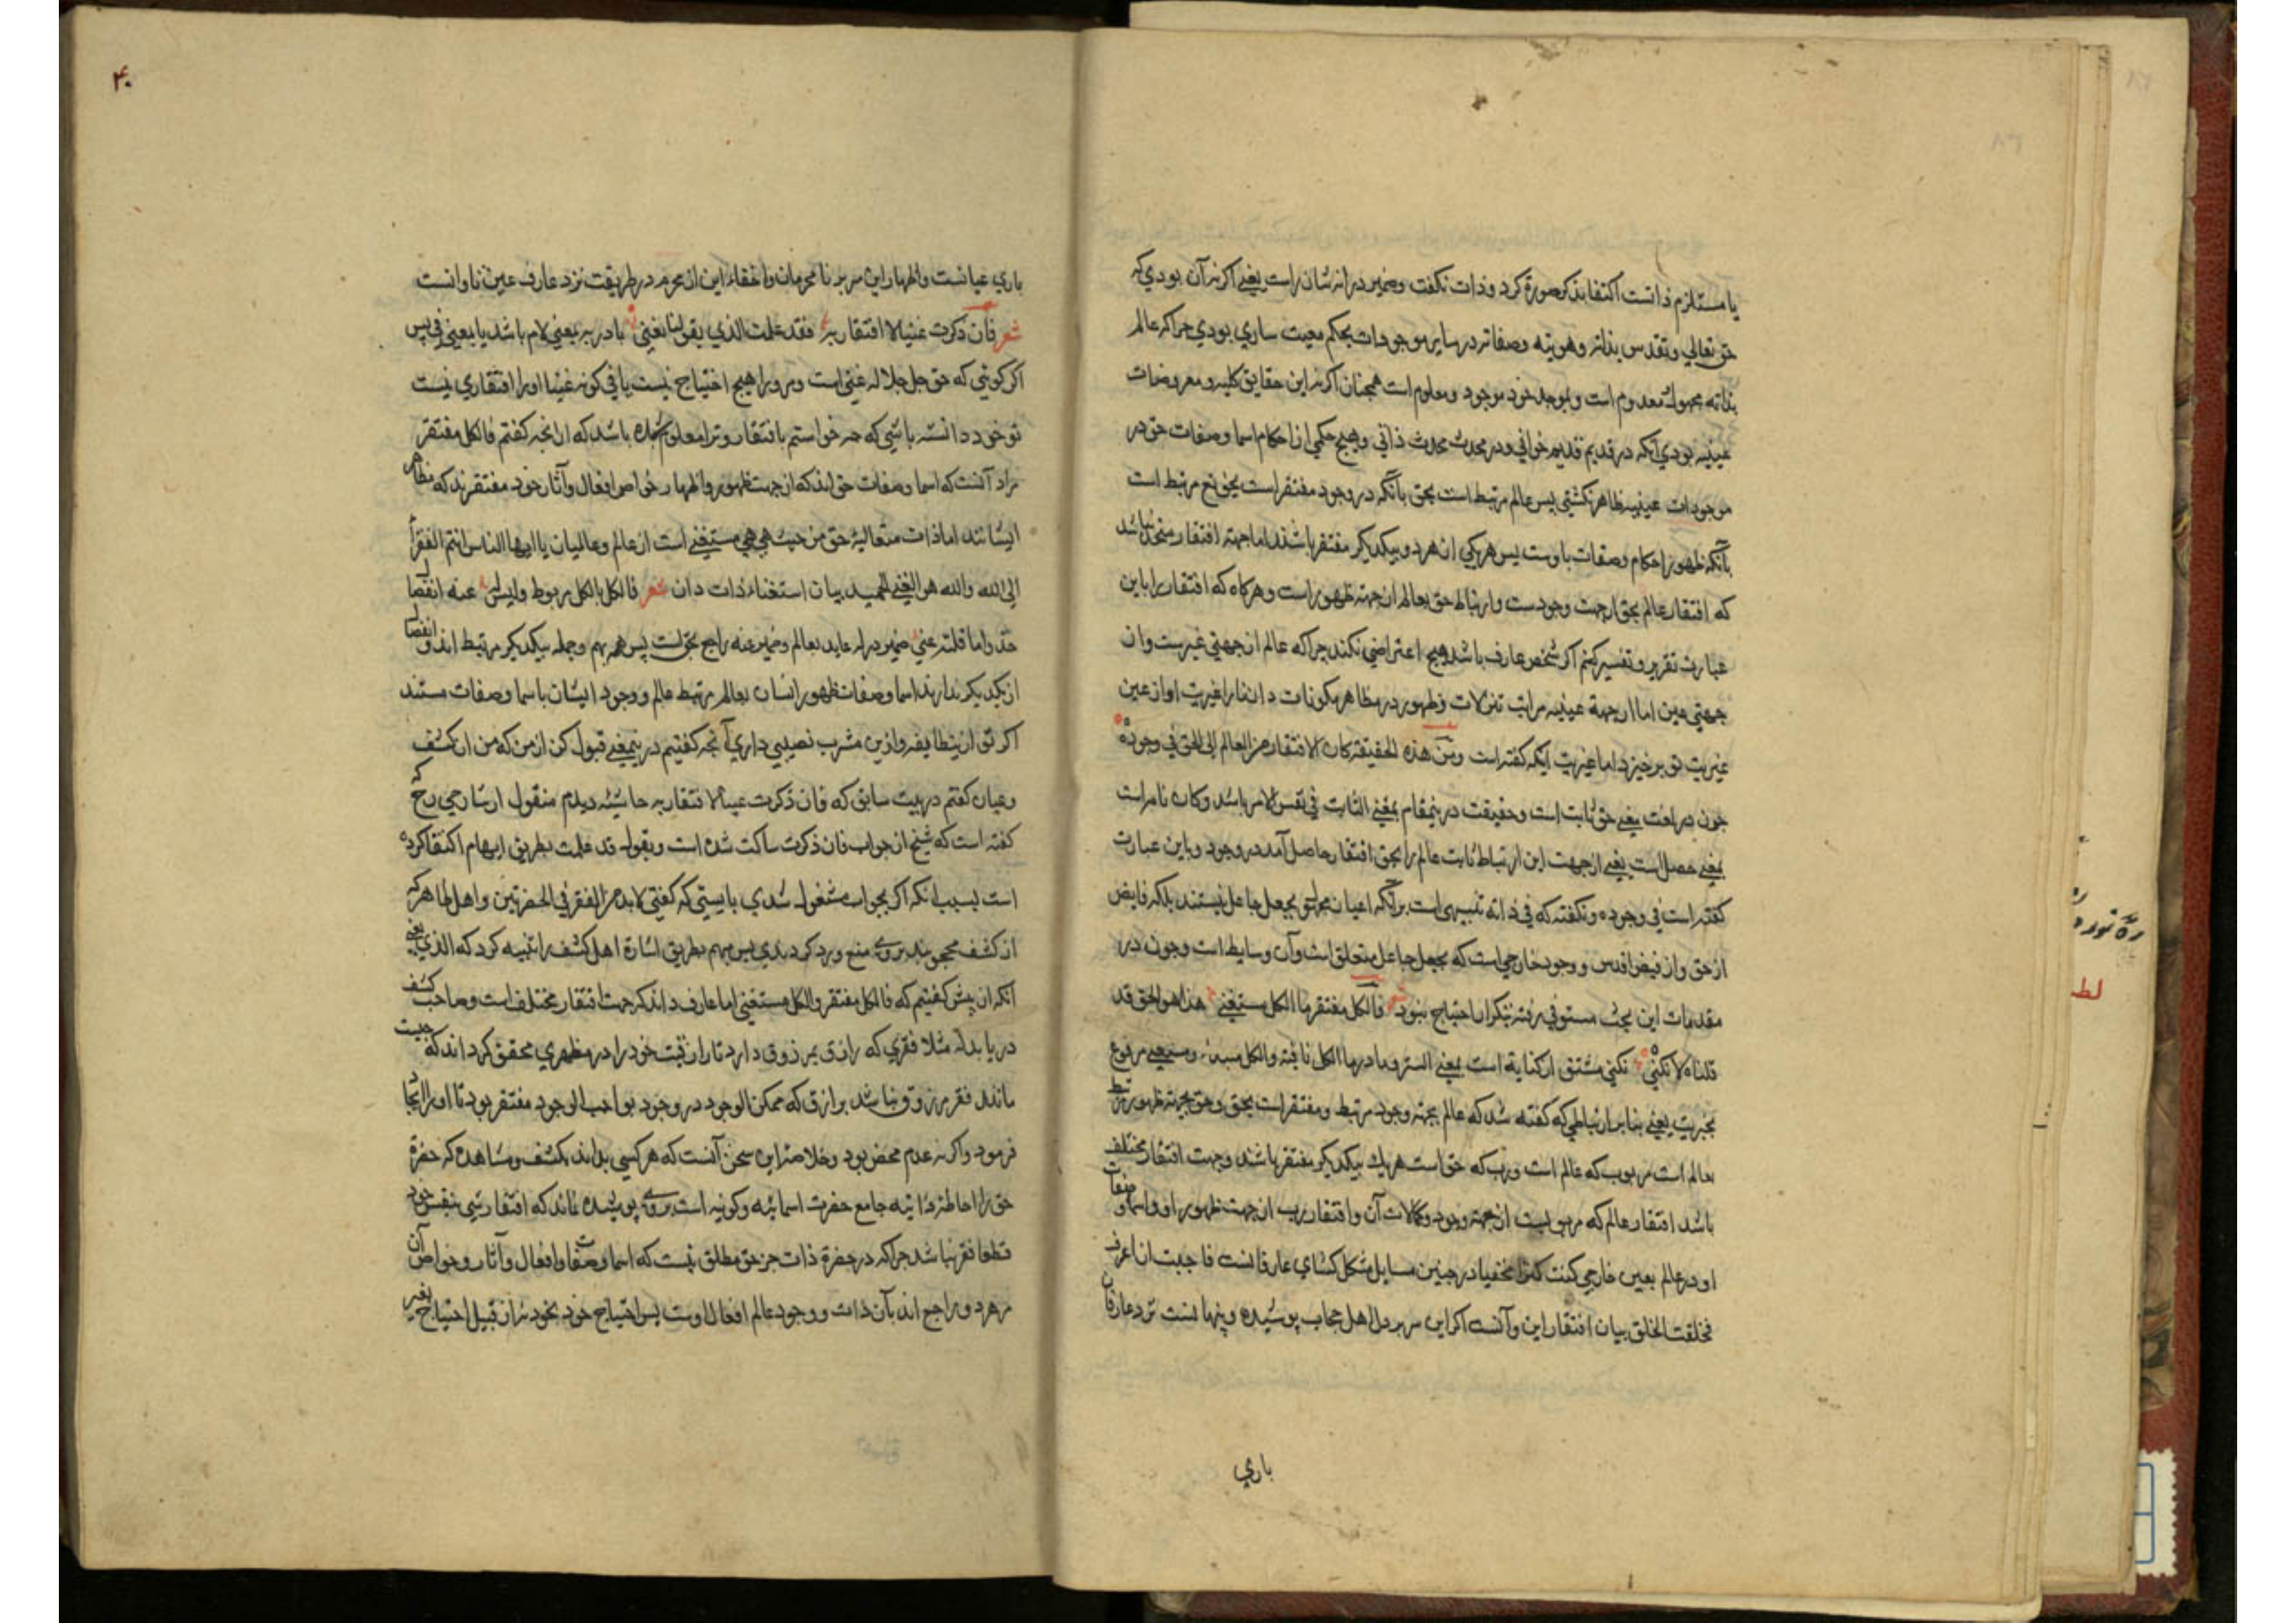 یا مستلزم ذاتست اکتفا بذکر صورة کرد و ذات نکفت و ضمیر در انه شان راست یعنی اکر نه آن بودی که
حق تعالی و تقدس بذاته و هویته و صفاته در سایر موجودات بحکم معیت ساری بودی جرا که عالم
بذاته مجهول معدوم است و بموجد خود موجود و معلوم است همجنان اکر نه این حقایق کلیه و معروضات
عینیه بودی آنکه در قدیم قدیم خوانی و در محدث محدث ذاتی و هیج حکمی از احکام اسما و صفات حق در
موجودات عینیه ظاهر نکشتی بس عالم مرتبط است بحق بآنکه در وجود مفتقر است بحق مرتبط است
بآنکه ظهور احکام و صفات باوست بس هریکی از هر دو بیکدیکر مفتقر باشند اما جهة افتقار متحد نباشد
که افتقار عالم بحق از جهت وجودست و ارتباط حق بعالم از جهة ظهور است و هرکاه که افتقار را باین
عبارت تقریر و تفسیر کنم اکر شخص عارف باشد هیج اعتراضی نکند جرا که عالم از جهتی غیرست و از
جهتی عین اما از جهة عینیه مراتب تنزلات و ظهور در مظاهر مکونات دانند را غیریت او از عین
غیریت تو برخیزد اما غیریت آنکه کفته است ومن هذه الحقیقة کان الافتقار من العالم الی الحق فی وجوده
جون در لغت یعنی حق ثابت است و حقیقت درینمقام بمعنی الثابت فی نفس الامر باشد و کان تامه است
بمعنی حصل است یعنی از جهت این ارتباط ثابت عالم را بحق افتقار حاصل آمد در وجود و باین عبارت
کفته است فی وجوده و نکفته که فی ذاته تنبیهی است برآنکه اعیان مجهول بجعل جاعل نیستند بلکه فایض
از حق و از فیض اقدس و وجود خارجی است که بجعل جاعل متعلق است وآن وسایط است و جون در
مقدمات این بحث مستوفی رفته بتکرار احتیاج نبود فالکل مفتقر ما الکل مستغنی هذا هو الحق قد
قلناه لا نکنی نکنی مشتق از کنایة است بمعنی الستر و ما در ما الکل نافیة و الکل مبتدا و مستغنی مرفوع
بخبریت یعنی بنابر ارتباطی که کفته شد که عالم بجهة وجود مرتبط و مفتقر است بحق و حق بجهة ظهور مرتبط
بعالم است مربوب که عالم است و رب که حق است هریک بیکدیکر مفتقر باشند و جهت افتقار مختلف
باشد افتقار عالم که مربوبست از جهة وجود و کمالات آن و افتقار رب از جهت ظهور او و اسما و صفات
او در عالم بعین خارجی کنت کنزا مخفیا در جنین مسایل مشکل کشای عارفانست فاحببت ان اعرف
فخلقت الخلق بیان افتقار این و آنست اکر این سر بر دل اهل حجاب پوشیده و پنهانست نزد عارفان
باری
۴۰
باری عیانست و اظهار این سر بر نامحرمان و اخفاء این از محرم در طریقت نزد عارف عین ناوانست
شعر فان ذکرت غنیا لا افتقار به فقد علمت الذی بقولنا نعنی با در به بمعنی لام باشد یا بمعنی فی پس
اکر کوئی که حق جل جلاله غنی است و مر ورا هیج احتیاج نیست یا فی کونه غنیا او را افتقاری نیست
تو خود دانسته باشی که جه خواستم بافتقار و ترا معلوم شده باشد که از انجه کفتم فالکل مفتقر
مراد آنست که اسما و صفات حق اند که از جهت ظهور و اظهار خواص افعال و آثار خود مفتقرند که مظاهر
ایشانند اما ذات متعالیه حق من حیث هی هی مستغنی است از عالم و عالمیان یا ایها الناس انتم الفقرا
الی الله والله هو الغنی الحمید بیان استغناء ذات دان شعر فالکل بالکل مربوط ولیس له عنه انفصال
خذوا ما قلته عنی ضمیر در له عاید بعالم و ضمیر عنه راجع بحق است پس همه بهم و جمله بیکدیکر مرتبط اند و انفصال
از یکدیکر ندارند اسما و صفات ظهور ایشان بعالم مرتبط عالم و وجود ایشان باسما و صفات مستند
اکر تو از ینطایفه و ازین مشرب نصیبی داری آنجه کفتیم درینمعنی قبول کن از من که من از کشف
و عیان کفتم در بیت سابق که فان ذکرت غنیا لا افتقار به حاشیه دیدم منقول از شارحی رح که
کفته است که شیخ از جواب فان ذکرت ساکت شده است و بقوله قد علمت بطریق ابهام اکتفا کرده
است بسبب انکه اکر بجواب مشغول شدی بایستی که کفتی لابد من الفقر فی الحضرتین و اهل ظاهر که
از کشف محجوبند بروی منع و رد کردندی بس مبهم بطریق اشارة اهل کشف را تنبیه کرد که الذی یعنی
آنکه از پیش کفتیم که فالکل مفتقر والکل مستغنی اما عارف داند که جهت افتقار مختلف است و صاحب کشف
دریابد که مثلا فقری که رازق بمرزوق دارد تا رازقیت خود را در مظهری محقق کرداند که جیت
مانند فقر مرزوق نباشد برازق که ممکن الوجود در وجود بواجب الوجود مفتقر بود تا او را ایجاد
فرمود و اکر نه عدم محض بود و خلاصه این سخن آنست که هر کسی بداند بکشف و مشاهده که حضرة
حق را احاطه ذاتیه جامع حضرت اسمائیه و کونیه است بروی پوشیده نماند که افتقار شی بنفس خود
قطعا فقر نباشد جرا که در حضرة ذات جز حق مطلق نیست که اسما و صفات و افعال و آثار و خواص آن
هر دو راجع اند بآن ذات و وجود عالم افعال اوست پس احتیاج خود بخود نه از قبیل احتیاج بغیر